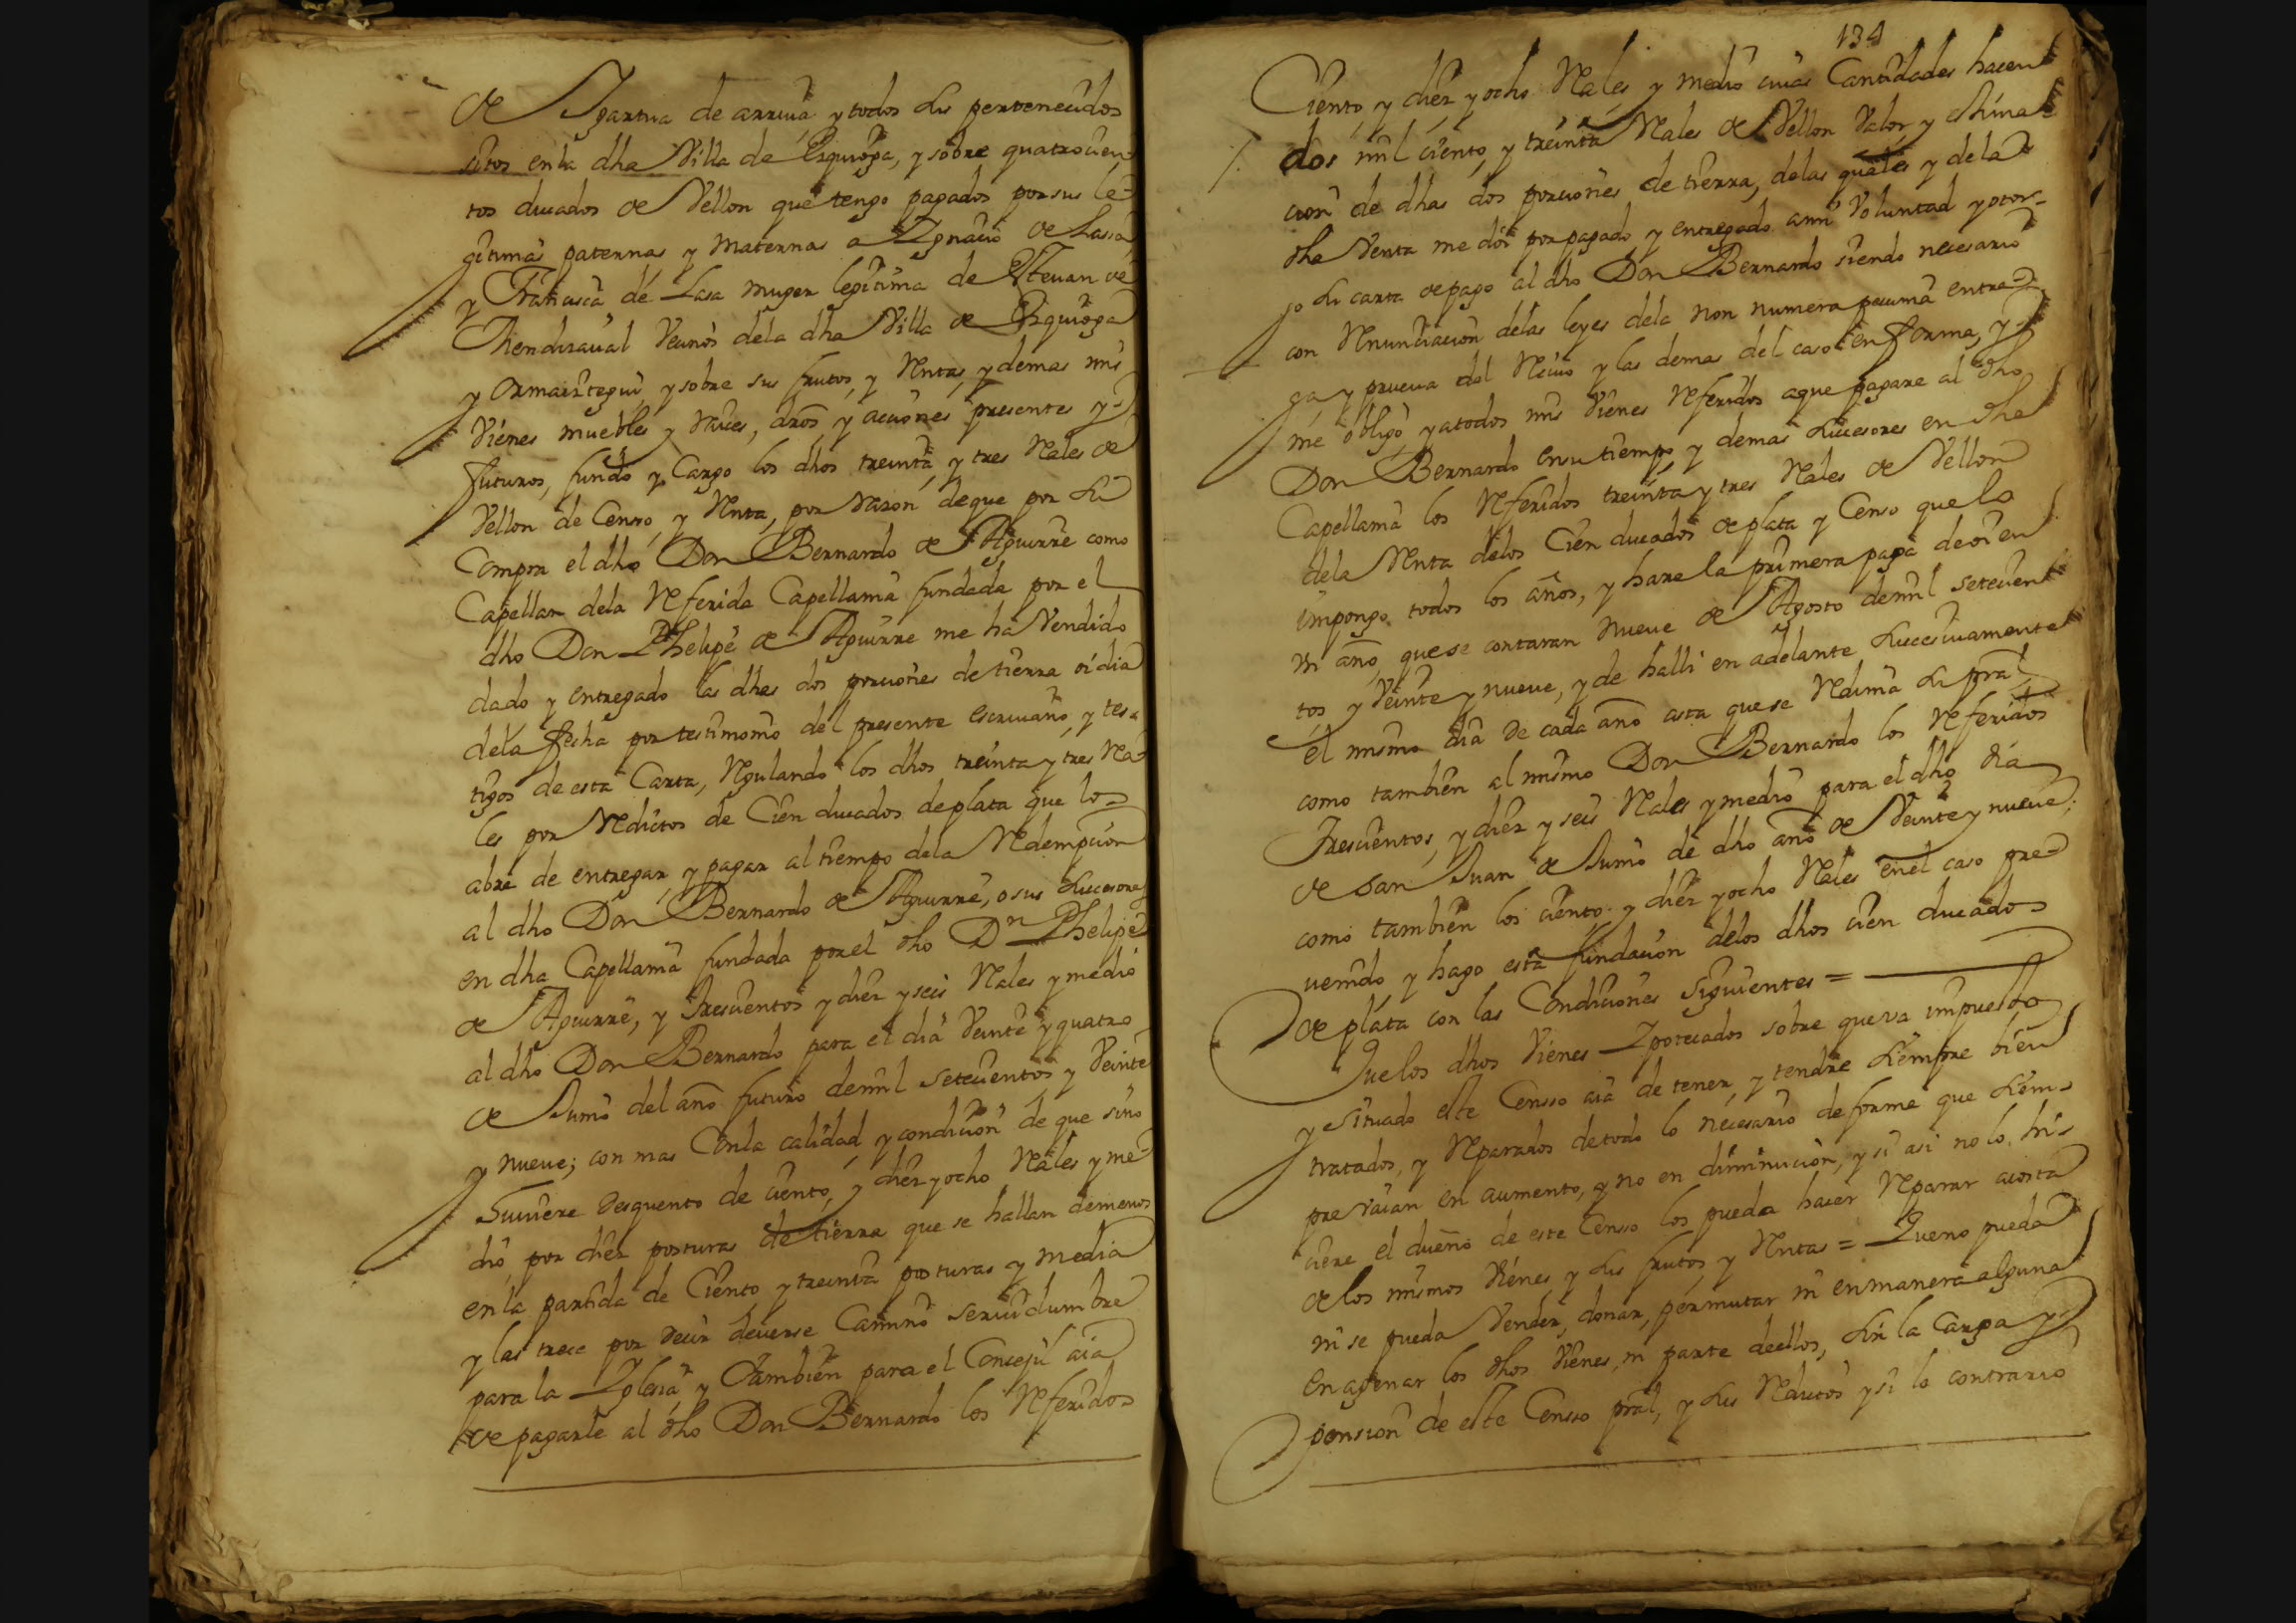 de Ygartua de arriua y todos sus pertenecidos
sitos en la dha Villa de Ezquioga, y sobre quatrocien
tos ducados de Vellon que tengo pagados por sus le-
gitimas paternas y maternas a Ygnacio de Lassa
y Francisca de Lasa muger legitima de Esteuan de
Mendizaual Vecinos dela dha Villa de Ezquioga
y Ormaiztegui, y sobre sus frutos, y Rentas, y demas mis
Vienes muebles y raices, dros y acciones presentes y
futuros, fundo y Cargo los dhos treinta y tres Reales de
Vellon de Censo, y Renta, por razon deque por su
Compra el dho Don Bernardo de Aguirre como
Capellan dela Referida Capellania fundada por el
dho Don Phelipe de Aguirre me ha Vendido
dado y entregado las dhas dos porciones de tierra oi dia
dela fecha por testimonio del presente escriuano, y tes-
tigos de esta Carta, Regulando los dhos treinta y tres Rea
les por Reditos de Cien ducados de plata que los
abre de entregar, y pagar al tiempo dela Redempcion
al dho Don Bernardo de Aguirre, o sus subcesores
en dha Capellania fundada por el dho Dn Phelipe
de Aguirre, y Trescientos y diez y seis Reales y medio
al dho Don Bernardo para el dia Veinte y quatro
de Junio del año futuro de mil setecientos y Veinte
y nueue; con mas Con la calidad, y condicion de que sino
Tuuiere desquento de ciento, y diez y ocho Reales y me-
dio por diez posturas de tierra que se hallan de menos
en la partida de Ciento y treinta posturas y media
y las trece por decir deuerse Camino seruidumbre
para la Yglesia y Tambien para el Consejil aia
de pagarle al dho Don Bernardo los Referidos
134
Ciento, y diez y ocho Reales y medio cuias Cantidades hacen
dos mil ciento, y treinta Reales de Vellon Valor y estima
cion de dhas dos porciones de tierra, delas quales y dela
dha Venta me doi por pagado y entregado a mi Voluntad y otor-
go su carta de pago al dho Don Bernardo siendo necesario
con Renunciacion delas leyes dela non numerata pecunia entre
ga, y prueua del Reciuo y las demas del caso en forma, y
me obligo y a todos mis Vienes Referidos a que pagare al dho
Don Bernardo en su tiempo y demas subcesores en dha
Capellania los Referidos treinta y tres Reales de Vellon
dela Renta delos Cien ducados de plata y Censo que lo
impongo todos los años, y hare la primera paga de oi en
un año, que se contaran nueue de Agosto de mil setecien
tos y Veinte y nueue, y de halli en adelante subcesiuamente
el mismo dia de cada año asta que se Redima su pral,
como tambien al mismo Don Bernardo los Referidos
Trescientos, y diez y seis Reales y medio para el dho dia
de San Juan de Junio de dho año de Veinte y nueue;
como tambien los ciento y diez y ocho Reales en el caso pre-
uenido y hago esta fundacion delos dhos cien ducados
de plata con las Condiciones siguientes =
Que los dhos Vienes Ypotecados sobre que va impuesto
y situado este Censo aia de tener, y tendre siempre bien
tratados, y Reparados de todo lo necesario de forma que siem-
pre vaian en aumento, y no en diminucion, y si asi no lo hi-
ciere el dueño de este Censo los pueda hacer Reparar a costa
de los mismos Vienes y sus frutos y Rentas = Que no pueda
ni se pueda Vender, donar, permutar ni en manera alguna
Enagenar los dhos Vienes, ni parte deellos, sin la Carga y
pension de este Censo pral, y sus Reditos y si lo contrario